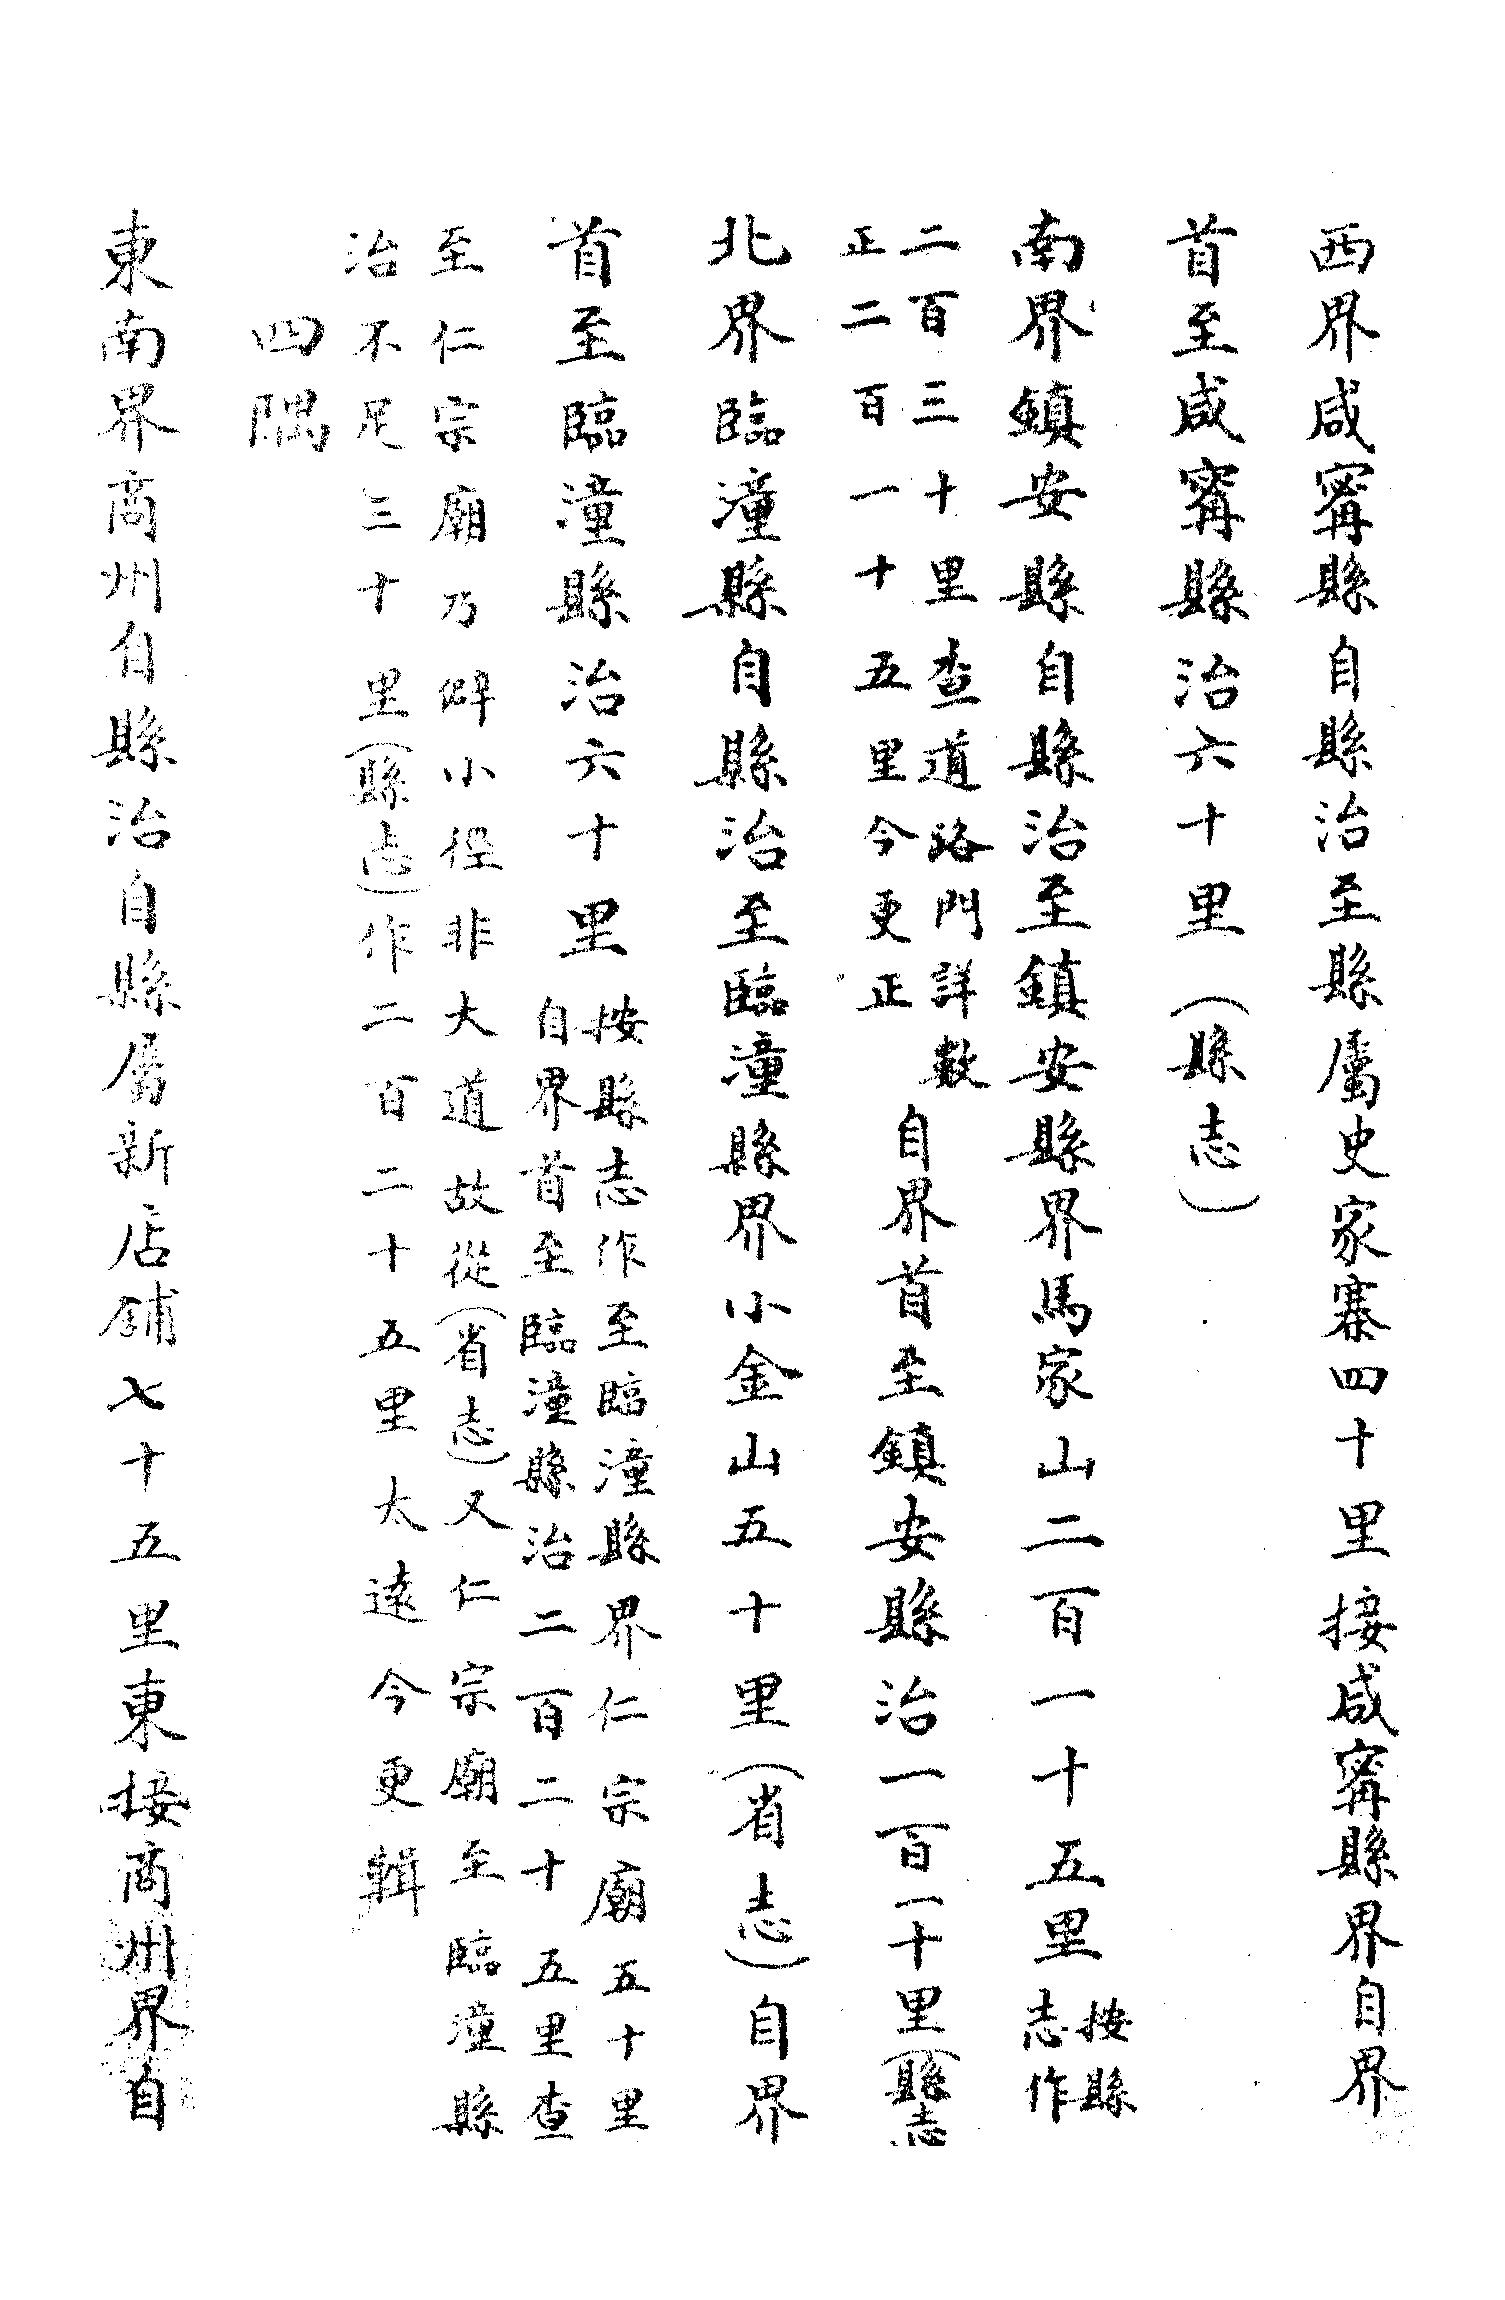 西界咸寗縣自縣治至縣屬史家寨四十里接咸寗縣界自界
首至咸寗縣治六十里（縣志）
南界鎮安縣自縣治至鎮安縣界馬家山二百一十五里
按縣
志作
二百三十里查道路門詳數
正二百一十五里今更正
自界首至鎮安縣治一百一十里（縣志
北界臨潼縣自縣治至臨潼縣界小金山五十里（省志）自界
首至臨潼縣治六十里
按縣志作至臨潼縣界仁宗廟五十里
自界首至臨潼縣治二百二十五里查
至仁宗廟乃僻小徑非大道故從（省志）又仁宗廟至臨潼縣
治不足三十里（縣志）作二百二十五里太遠今更輯
四隅
東南界商州自縣治自縣屬新店鋪七十五里東接商州界自